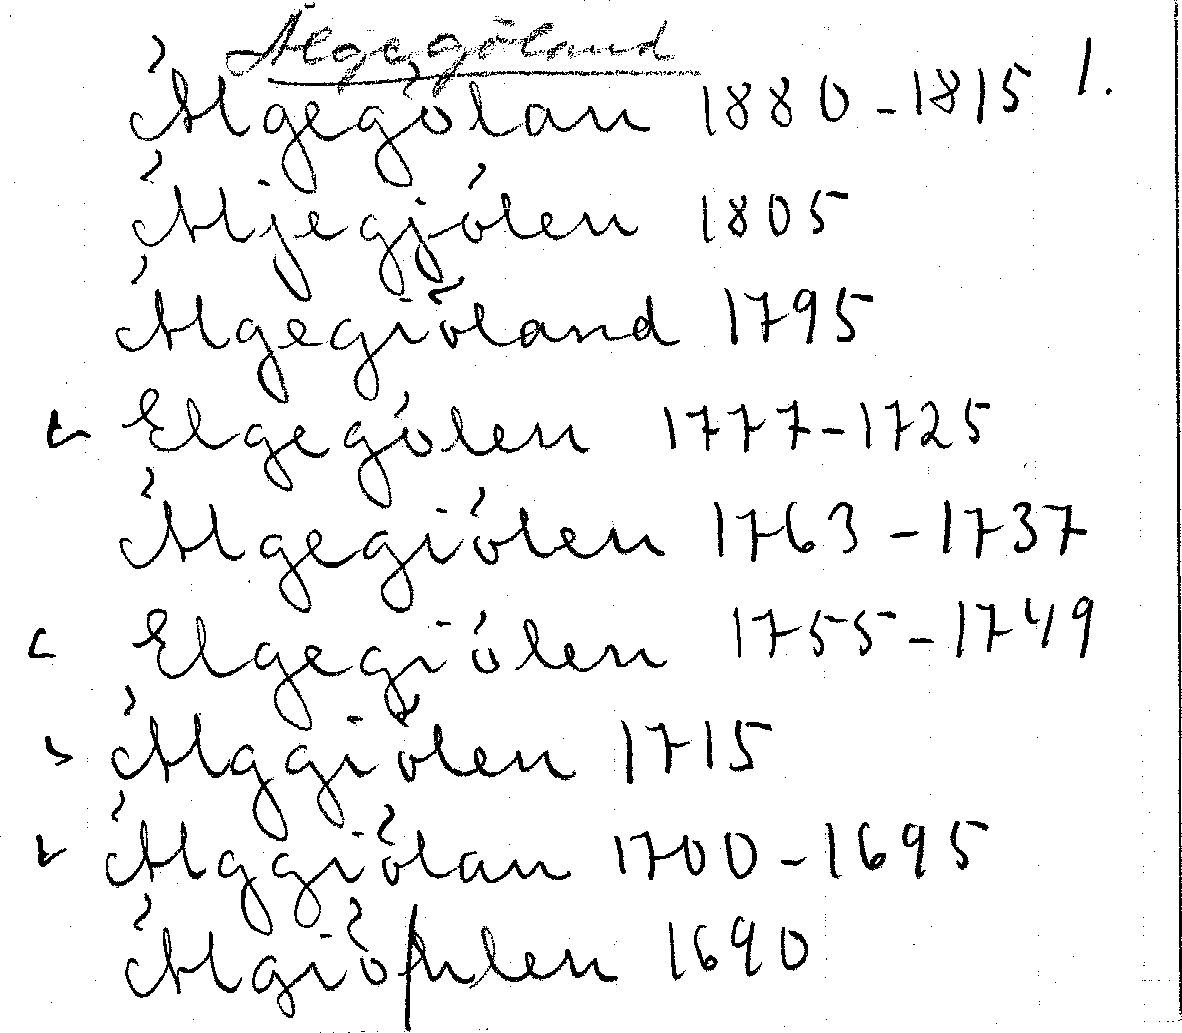 Älgegöland
Älgegölan 1880-1815 1.
Äljegjölen 1805
Älgegiöland 1795
Elgegölen 1777-1725
Älgegiölen 1763-1737
Elgegiölen 1755-1749
Älggiölen 1715
Älggiölan 1700-1695
Älgiöhlen 1690